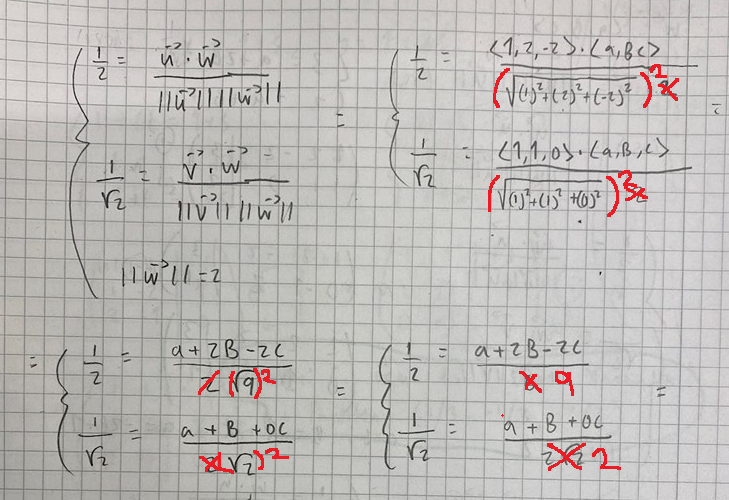 1/2 = u⃗ · w⃗ / ||u⃗|| ||w⃗||
1/√2 = v⃗ · w⃗ / ||v⃗|| ||w⃗||
||w⃗|| = 2
= { 1/2 = <1, 2, -2> · <a, B C> / (√(1)²+(2)²+(-2)²)²
1/√2 = <1, 1, 0> · <a, B, c> / (√(1)²+(1)²+(0)²)² =
= { 1/2 = a + 2B - 2C / 2 (√9)²
1/√2 = a + B + 0C / 2 (√2)²
= { 1/2 = a + 2B - 2C / 9
1/√2 = a + B + 0C / 2√2 2 =